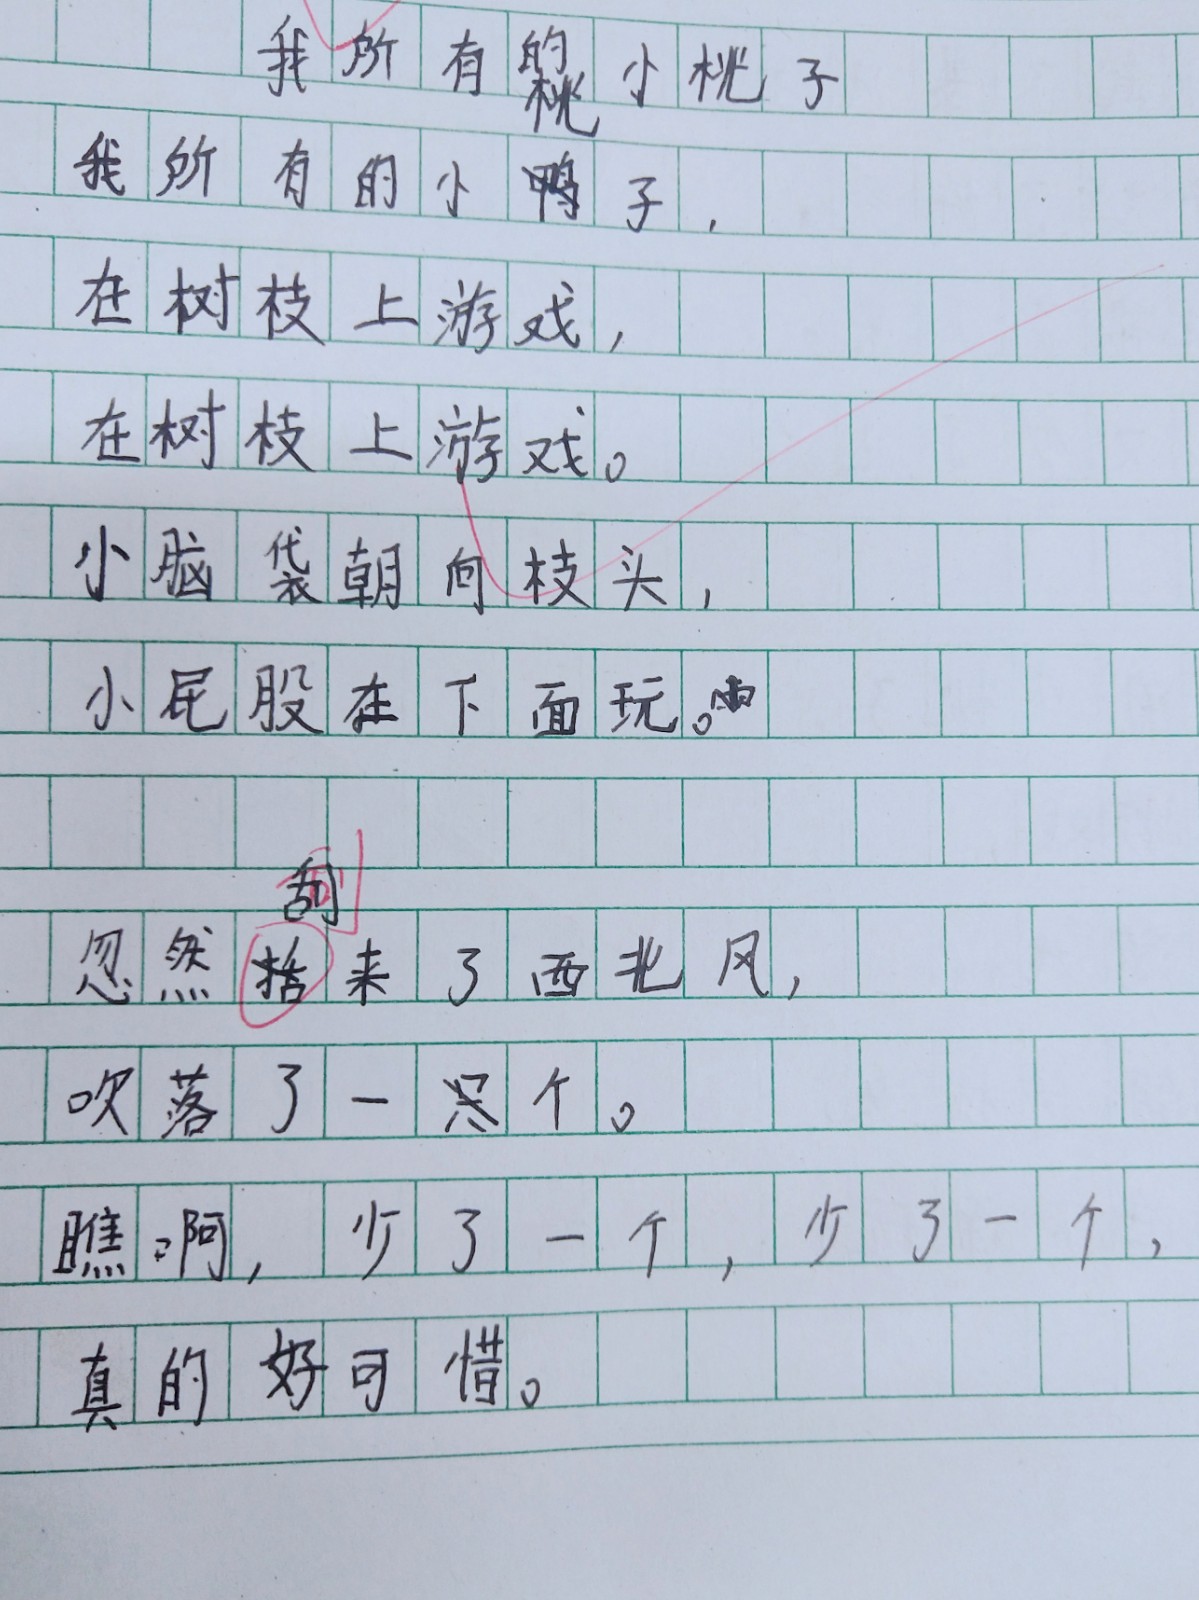 我所有的小桃子
桃
我所有的小鸭子，
在树枝上游戏，
在树枝上游戏。
小脑袋朝向枝头，
小屁股在下面玩。
刮
忽然括来了西北风，
吹落了一只个。
瞧啊，少了一个，少了一个，
真的好可惜。